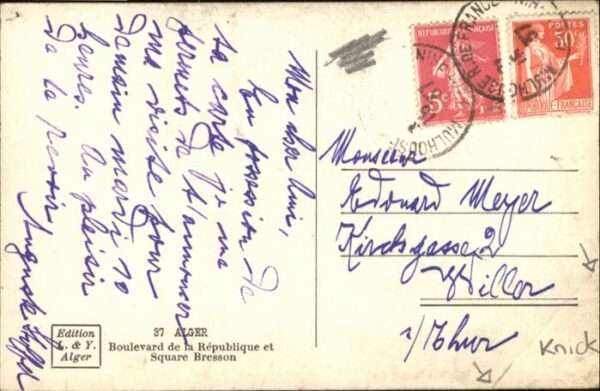 Mon cher
En possession de
ta carte je me
permets de t'annoncer
ma visite pour
demain mardi 10
heures. Au plaisir
de te revoir
Auguste
POSTES
50c
REPUBLIQUE FRANÇAISE
MULHOUSE
Monsieur
Edouard Meyer
Kirchgasse 2
Willer
s/Thur
Knick
Edition
L. & Y.
Alger
37 ALGER
Boulevard de la République et
Square Bresson